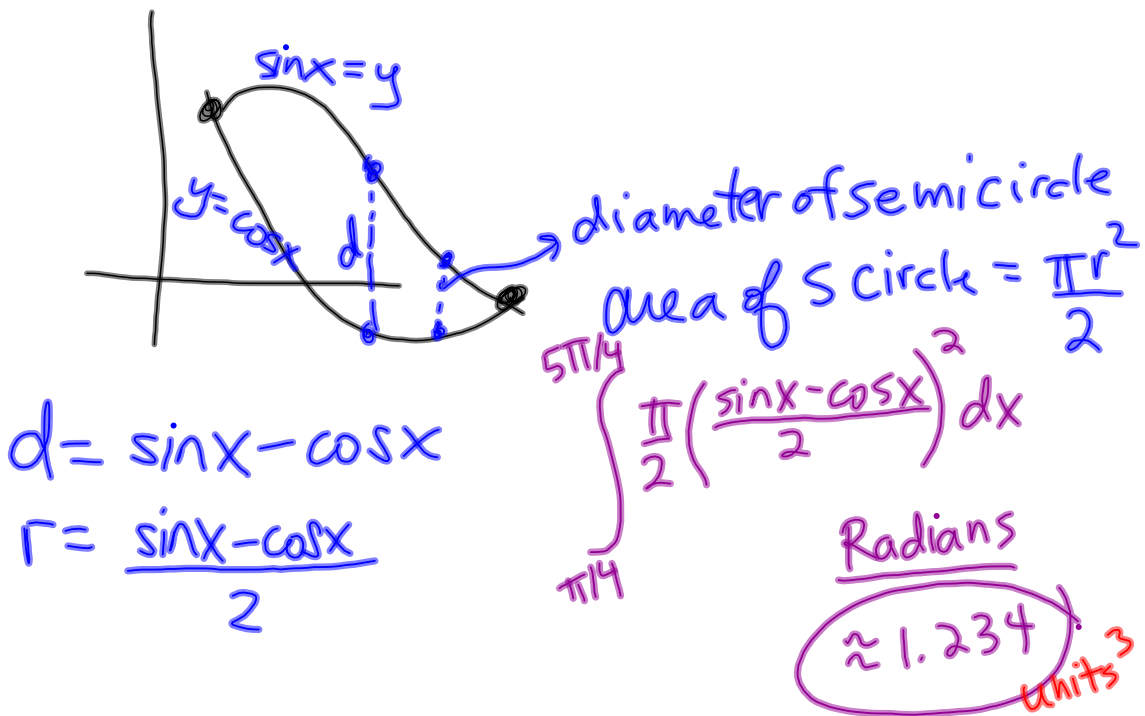 sinx=y
y=cosx
d
diameter of semicircle
area of s circle = πr²/2
d= sinx-cosx
r= sinx-cosx/2
5π/4
∫ π/2 (sinx-cosx/2)² dx
π/4
Radians
≈1.234
units³